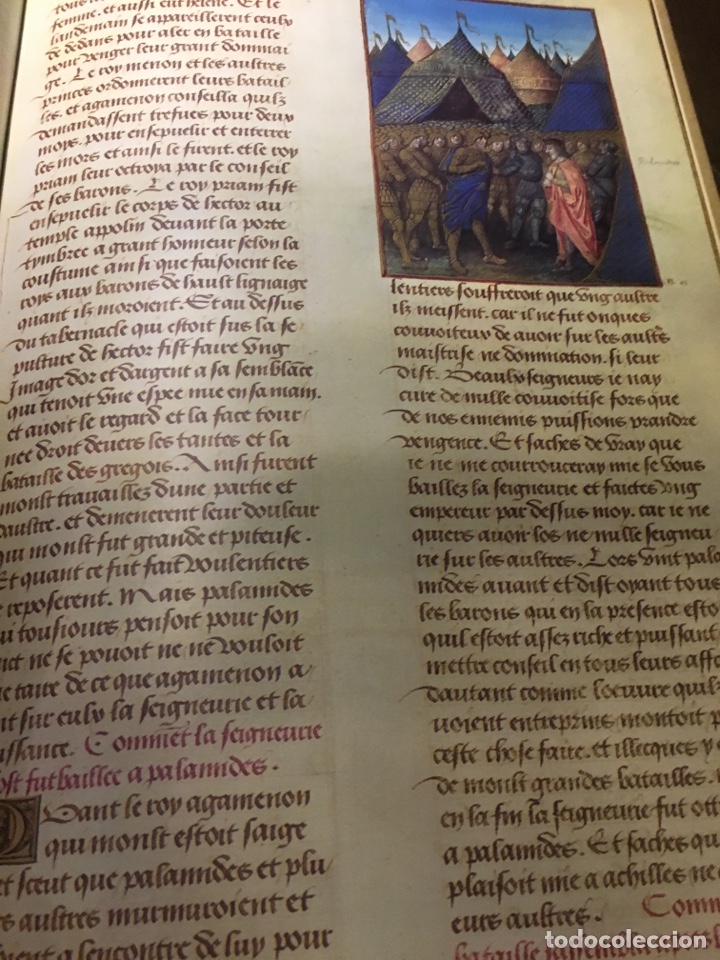 tous
femme, et aussi eut helene. Et le
landemain se appareillerent ceulx
de dedans pour aler en bataille
pour venger leur grant dommai
ge. Le roy menon et les aultres
princes ordonnerent leurs batail
les. et agamenon conseilla quilz
demandassent trefues pour deux
moys. pour ensepuelir et enterrer
les mors et ainsi le firent. et le roy
priam leur octroya par le conseil
de ses barons. Le roy priam fist
ensepuelir le corps de hector au
temple appolin deuant la porte
tymbree a grant honneur selon la
coustume ainsi que faisoient les
roys aux barons de hault lignaige
quant ilz moroient. Et au dessus
du tabernacle qui estoit sus la se
pulture de hector fist faire vng
Image dor et dargent a sa semblāce
qui tenoit vne espee nue en sa main.
et auoit le regard et la face tour
nee droit deuers les tantes et la
bataille des gregois. Ainsi furent
moult trauaillez dune partie et
daultre. et demenerent leur douleur
qui moult fut grande et piteuse.
Et quant ce fut fait voulentiers
se reposerent. Mais palamides
qui tousiours pensoit pour son
ne se pouoit ne ne vouloit
taire de ce que agamenon a
sur eulx la seigneurie et la
puissance. Commēt la seigneurie
ost fut baillee a palamides.
Quant le roy agamenon
qui moult estoit saige
et sceut que palamides et plu
aultres murmuroient et
a lencontre de luy pour
lentiers souffreroit que vng aultre
ilz meissent. car il ne fut onques
couuoiteux de auoir sur les aultēs
maistrise ne dommation. si leur
dist. Beaulx seigneurs ie nay
cure de nulle couuoitise fors que
de nos ennemis puissions prandre
vengence. Et saches de vray que
ie ne me courrouceray mie se vous
baillez la seigneurie et faictes vng
empereur par dessus moy. car ie ne
quiers auoir los ne nulle seigneu
rie sur les aultres. Lors vint pala
mides auant et dist oyant tous
les barons qui en la presence esto
quil estoit assez riche et puissant
mettre conseil en tous leurs affa
dautant comme loeuure quilz
uoient entreprins montoit p
ceste chose faire. et illecques y
de moult grandes batailles.
en la fin la seigneurie fut ott
a palamides. Et saches qu
plaisoit mie a achilles ne
eurs aultres. Comm
bataille
todocoleccion